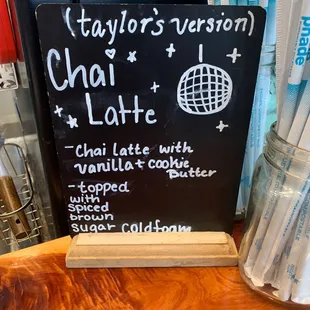 (taylor's version)
Chai
Latte
- Chai latte with
vanilla + cookie
Butter
- topped
with
spiced
brown
sugar coldfoam
phade